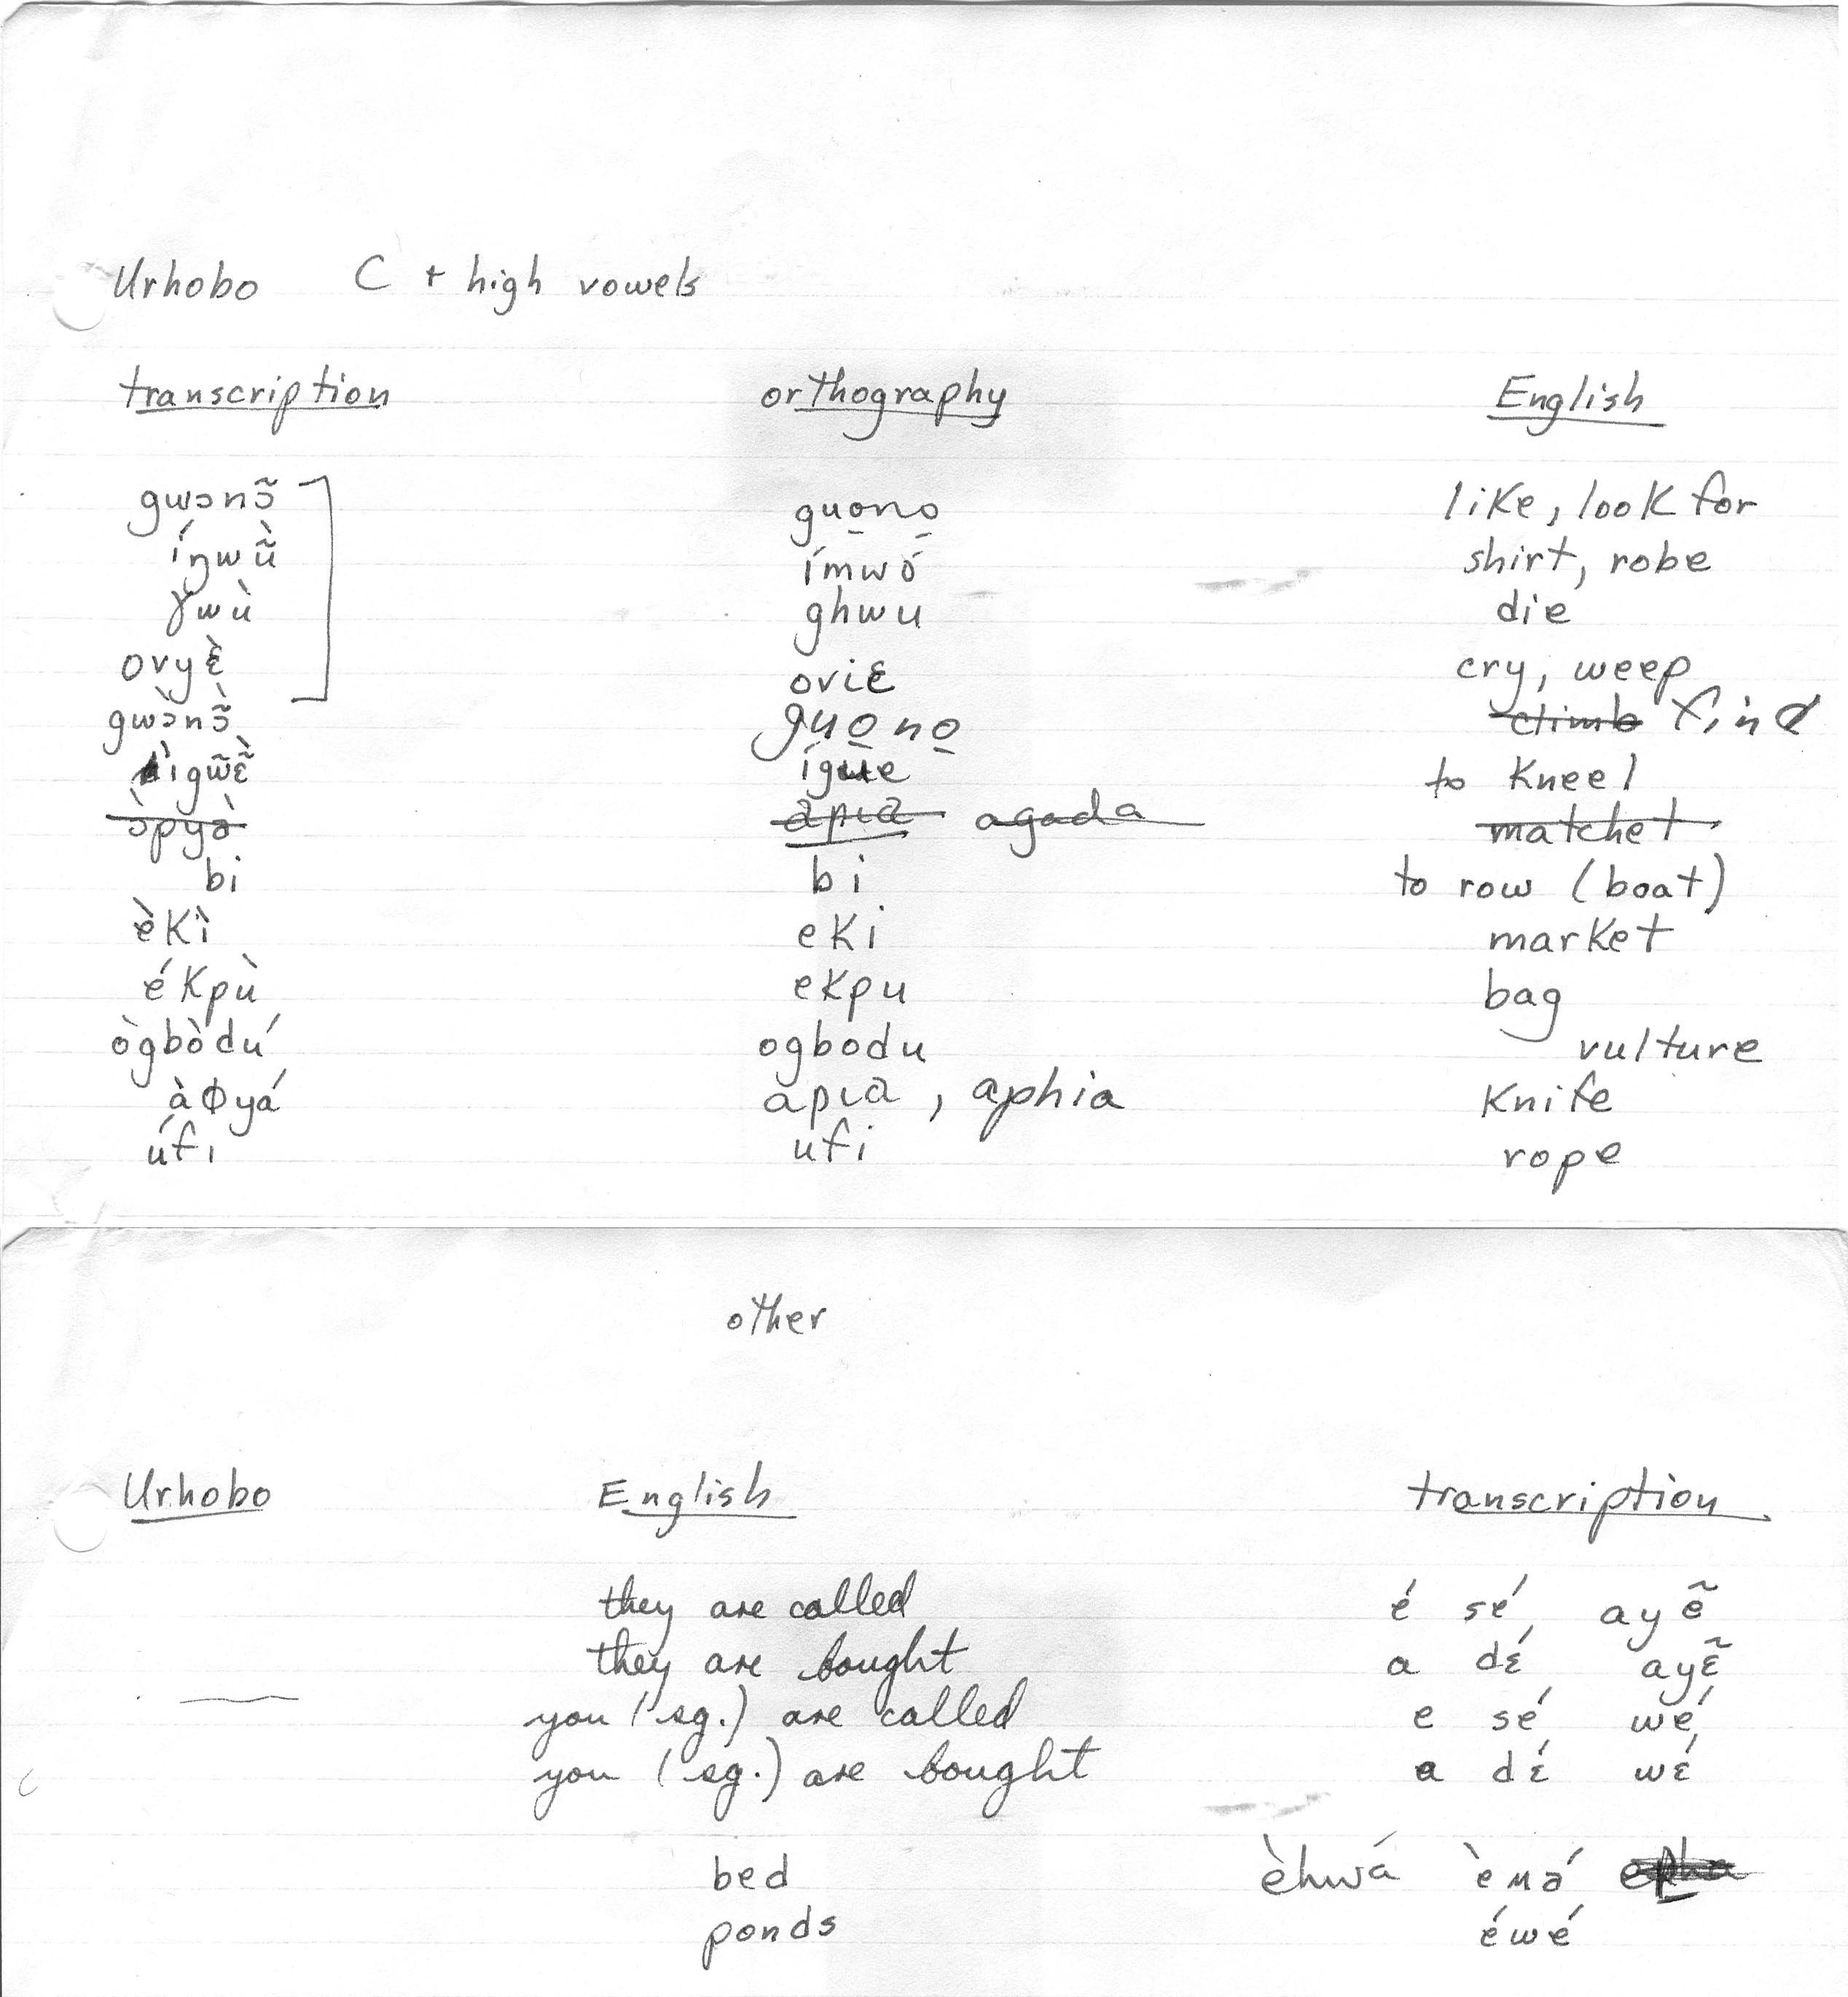 Urhobo C + high vowels
transcription orthography English
gwɔnɔ̃ guo̱no̱ like, look for
íŋwũ̀ ímwó shirt, robe
ɣwù ghwu die
ovyɛ̀ oviɛ cry, weep
gwɔ̀nɔ̃̀ guo̱no̱ climb find
ìgw̃ɛ̃̀ ígue to kneel
ɔ̀pyɔ̀ apıa agada matchet
bi bi to row (boat)
èkì eki market
ékpù ekpu bag
ògbòdú ogbodu vulture
àɸyá apıa, aphia knife
úfi ufi rope
other
Urhobo English transcription
they are called é sé ayẽ
they are bought a dɛ́ ayɛ̃
you (sg.) are called e sé wé
you (sg.) are bought a dɛ́ wɛ́
bed èhwá èʍá
ponds éwé